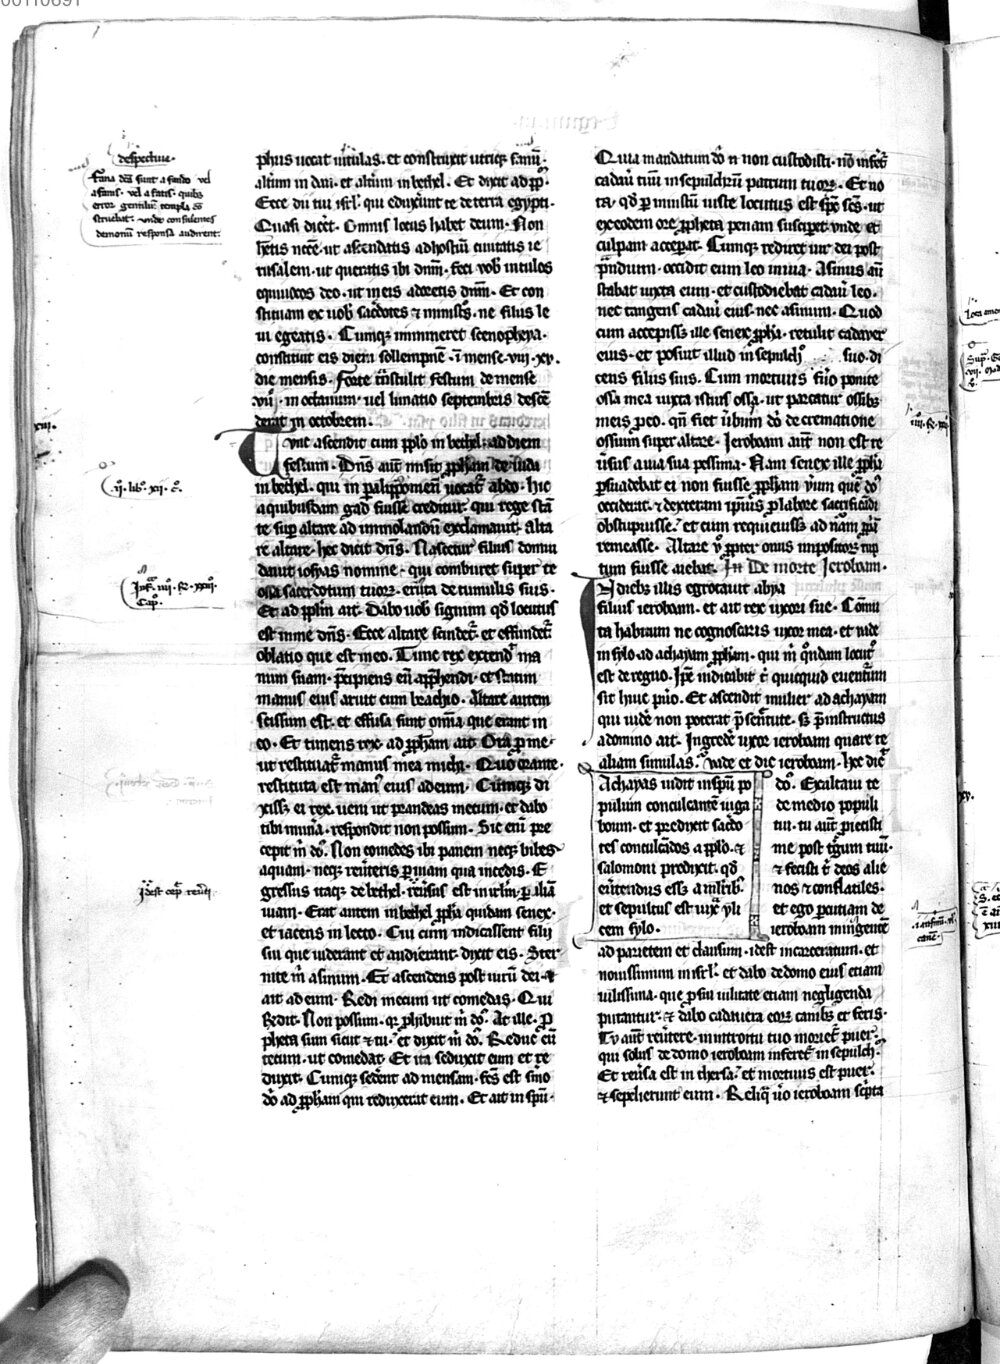 00110691
despective.
fana dc̄a sunt a fando vel
a fanis. vel a fatis. quibȝ
error gentiliū templa cō
struebat. unde consulentes
demoniū responsa audirent.
phus uocat uitulas. et construxit utriqȝ fanū.
altum in dan. et altūm in bethel. Et dixit ad pp̄.
Ecce dii tui isrl̄. qui eduxerūt te de terra egypti.
Quasi dicēt. Omnis locus habet deum. Non
hetis nccē. ut ascendatis ad hostiū ciuitatis ie
rusalem. ut queratis ibi dnm̄. feci uob̄ uitulos
equiuocos deo. ut in eis adoretis dnm̄. Et con
stituam ex uob̄ sac̄dotes ⁊ ministꝰs. ne filiis le
ui egeatis. Cumqȝ immineret scenophegia.
constituit eis diem sollempnē. ī mense. viii. xv.
die mensis. Forte t̄nstulit festum de mense
vii. in octauum. uel lunatio septembris descē
derat in octobrem.
Tunc ascendit cum pplo in bethel. ad diem
festum. Dn̄s aut̄ misit pp̄ham de iuda
in bethel. qui in paralippomen̄ uocat̄ abdo. hic
a quibusdam gad fuisse creditur. qui rege stan̄
te sup̄ altare ad immolandū exclamauit. Alta
re altare. hec dicit dn̄s. Nascetur filius domui
dauit iosyas nomine. qui comburet super te
ossa sacerdotum tuoꝝ. eruta de tumulis suis.
Et ad pplm̄ ait. Dabo uob̄ signum qd̄ locutus
est in me dn̄s. Ecce altare scindet̄. et effundet̄
oblatio que est in eo. Tunc rex extend̄ ma
num suam. p̄cipiens eū app̄hendi. et statim
manus eius aruit cum brachio. Altare autem
scissum est. et effusa sunt omīa que erant in
eo. Et timens rex. ad pp̄ham ait. Ora p̄ me.
ut restituat̄ manus mea michi. Quo orante.
restituta est manꝰ eius ad eum. Cumqȝ di
xissȝ ei rex. ueni ut prandeas mecum. et dabo
tibi mun̄a. respondit non possum. Sic enī pre
cepit m̄ do᷒. Non comedes ibi panem neqȝ bibes
aquam. neqȝ reūteris p̄ uiam qua incedis. E
gressus itaqȝ de bethel. reūsus est in irlm̄. p̄ aliā
uiam. Erat autem in bethel pp̄ha quidam senex.
et iacens in lecto. Cui cum indicassent filij
sui que uiderant et audierant. dixit eis. Ster
nite m̄ asinum. Et ascendens post uirū dei. ⁊
ait ad eum. Redi mecum ut comedas. Qui
Redit. Non possum. qr̄ phibuit m̄ do᷒. At ille. p̄
pheta sum sicut ⁊ tu. et dixit m̄ do᷒. Reduc eū
tecum. ut comedat. Et ita seduxit eum et re
duxit. Cumqȝ sedēnt ad mensam. fc̄s est sm̄o
do᷒ ad pp̄ham qui reduxerat eum. Et ait in spū.
Quia mandatum do᷒ n̄ non custodisti. nō infet̄
cadau̅ tuū in sepulchrū patrum tuoꝝ. Et no
ta. qd̄ p̄ ministū iuste locutus est sp̄c scs̄. ut
ex eodem ore pp̄heta penam susciperet unde et
culpam acceperat. Cumqȝ rediret uir dei post
p̄ndium. occidit eum leo in uia. Asinus aut̄
stabat iuxta eum. et custodiebat cadau̅ leo.
nec tangens cadau̅ eius. nec asinum. Quod
cum accepissȝ ille senex pp̄ha. retulit cadauer
eius. et posuit illud in sepulch᷒ suo. di
cens filiis suis. Cum mortuus fu̅o ponite
ossa mea iuxta istius ossa. ut parcatur ossibȝ
meis p̄ eo. qn̄ fiet u̅bum do᷒ de crematione
ossium super altare. Ieroboam aut̄ non est re
uersus a uia sua pessima. Nam senex ille pp̄ha
p̄suadebat ei non fuisse pp̄ham u̅um quē do᷒
occiderit. ⁊ dexteram ip̄ius p̄ labore sacrificādi
obstupuisse. et cum requieuissȝ ad nām p̄pri
remeasse. Altare v̄ p̄pter onus impositoꝝ rup
tum fuisse aiebat. De morte Ieroboam.
In diebȝ illis egrotauit abya
filius ieroboam. et ait rex uxori sue. Cōmu
ta habitum ne cognoscaris uxor mea. et uade
in sylo ad achayam pp̄ham. qui m̄ qn̄dam locutꝰ
est de regno. Ip̄e indicabit t̄ quicquid euenturū
sit huic pu̅o. Et ascendit mulier ad achayam
qui uidē non poterat p̄ senectute. Sȝ p̄instructus
a domino ait. Ingredē uxor ieroboam quare te
aliam simulas. Vade et dic ieroboam. hec dic̄
Achayas uidit in spū po
pulum conculcantē iuga
boum. et predixit sac̄do
tes conculcādos a pplo. ⁊
salomoni predixit. qd̄
eu̅tendus essȝ a mlr̄ibȝ.
et sepultus est iux̄ yli
cem sylo.
do᷒. Exaltaui te
de medio populi
tui. tu aut̄ proiecisti
me post t̄gum tuū.
⁊ fecisti t̄ deos alie
nos ⁊ conflatiles.
et ego p̄cutiam de
ieroboam mingentē
ad parietem et clausum. idest incarceratum. et
nouissimum in isrl̄. et dabo de domo eius etiam
uilissima. que p̄ sui uilitate etiam negligenda
putantur. ⁊ dabo cadauera eoꝝ canibȝ et feris.
Tu aut̄ reu̅tere. in introitu tuo moriet̄ puer.
qui solus de domo ieroboam inferet̄ in sepulch᷒.
Et reu̅sa est in thersa. et mortuus est puer.
⁊ sepelierunt eum. Reliqȝ u̅o ieroboam sc̄pta
.vi. lib᷒. xii. c᷒.
Cap᷒.